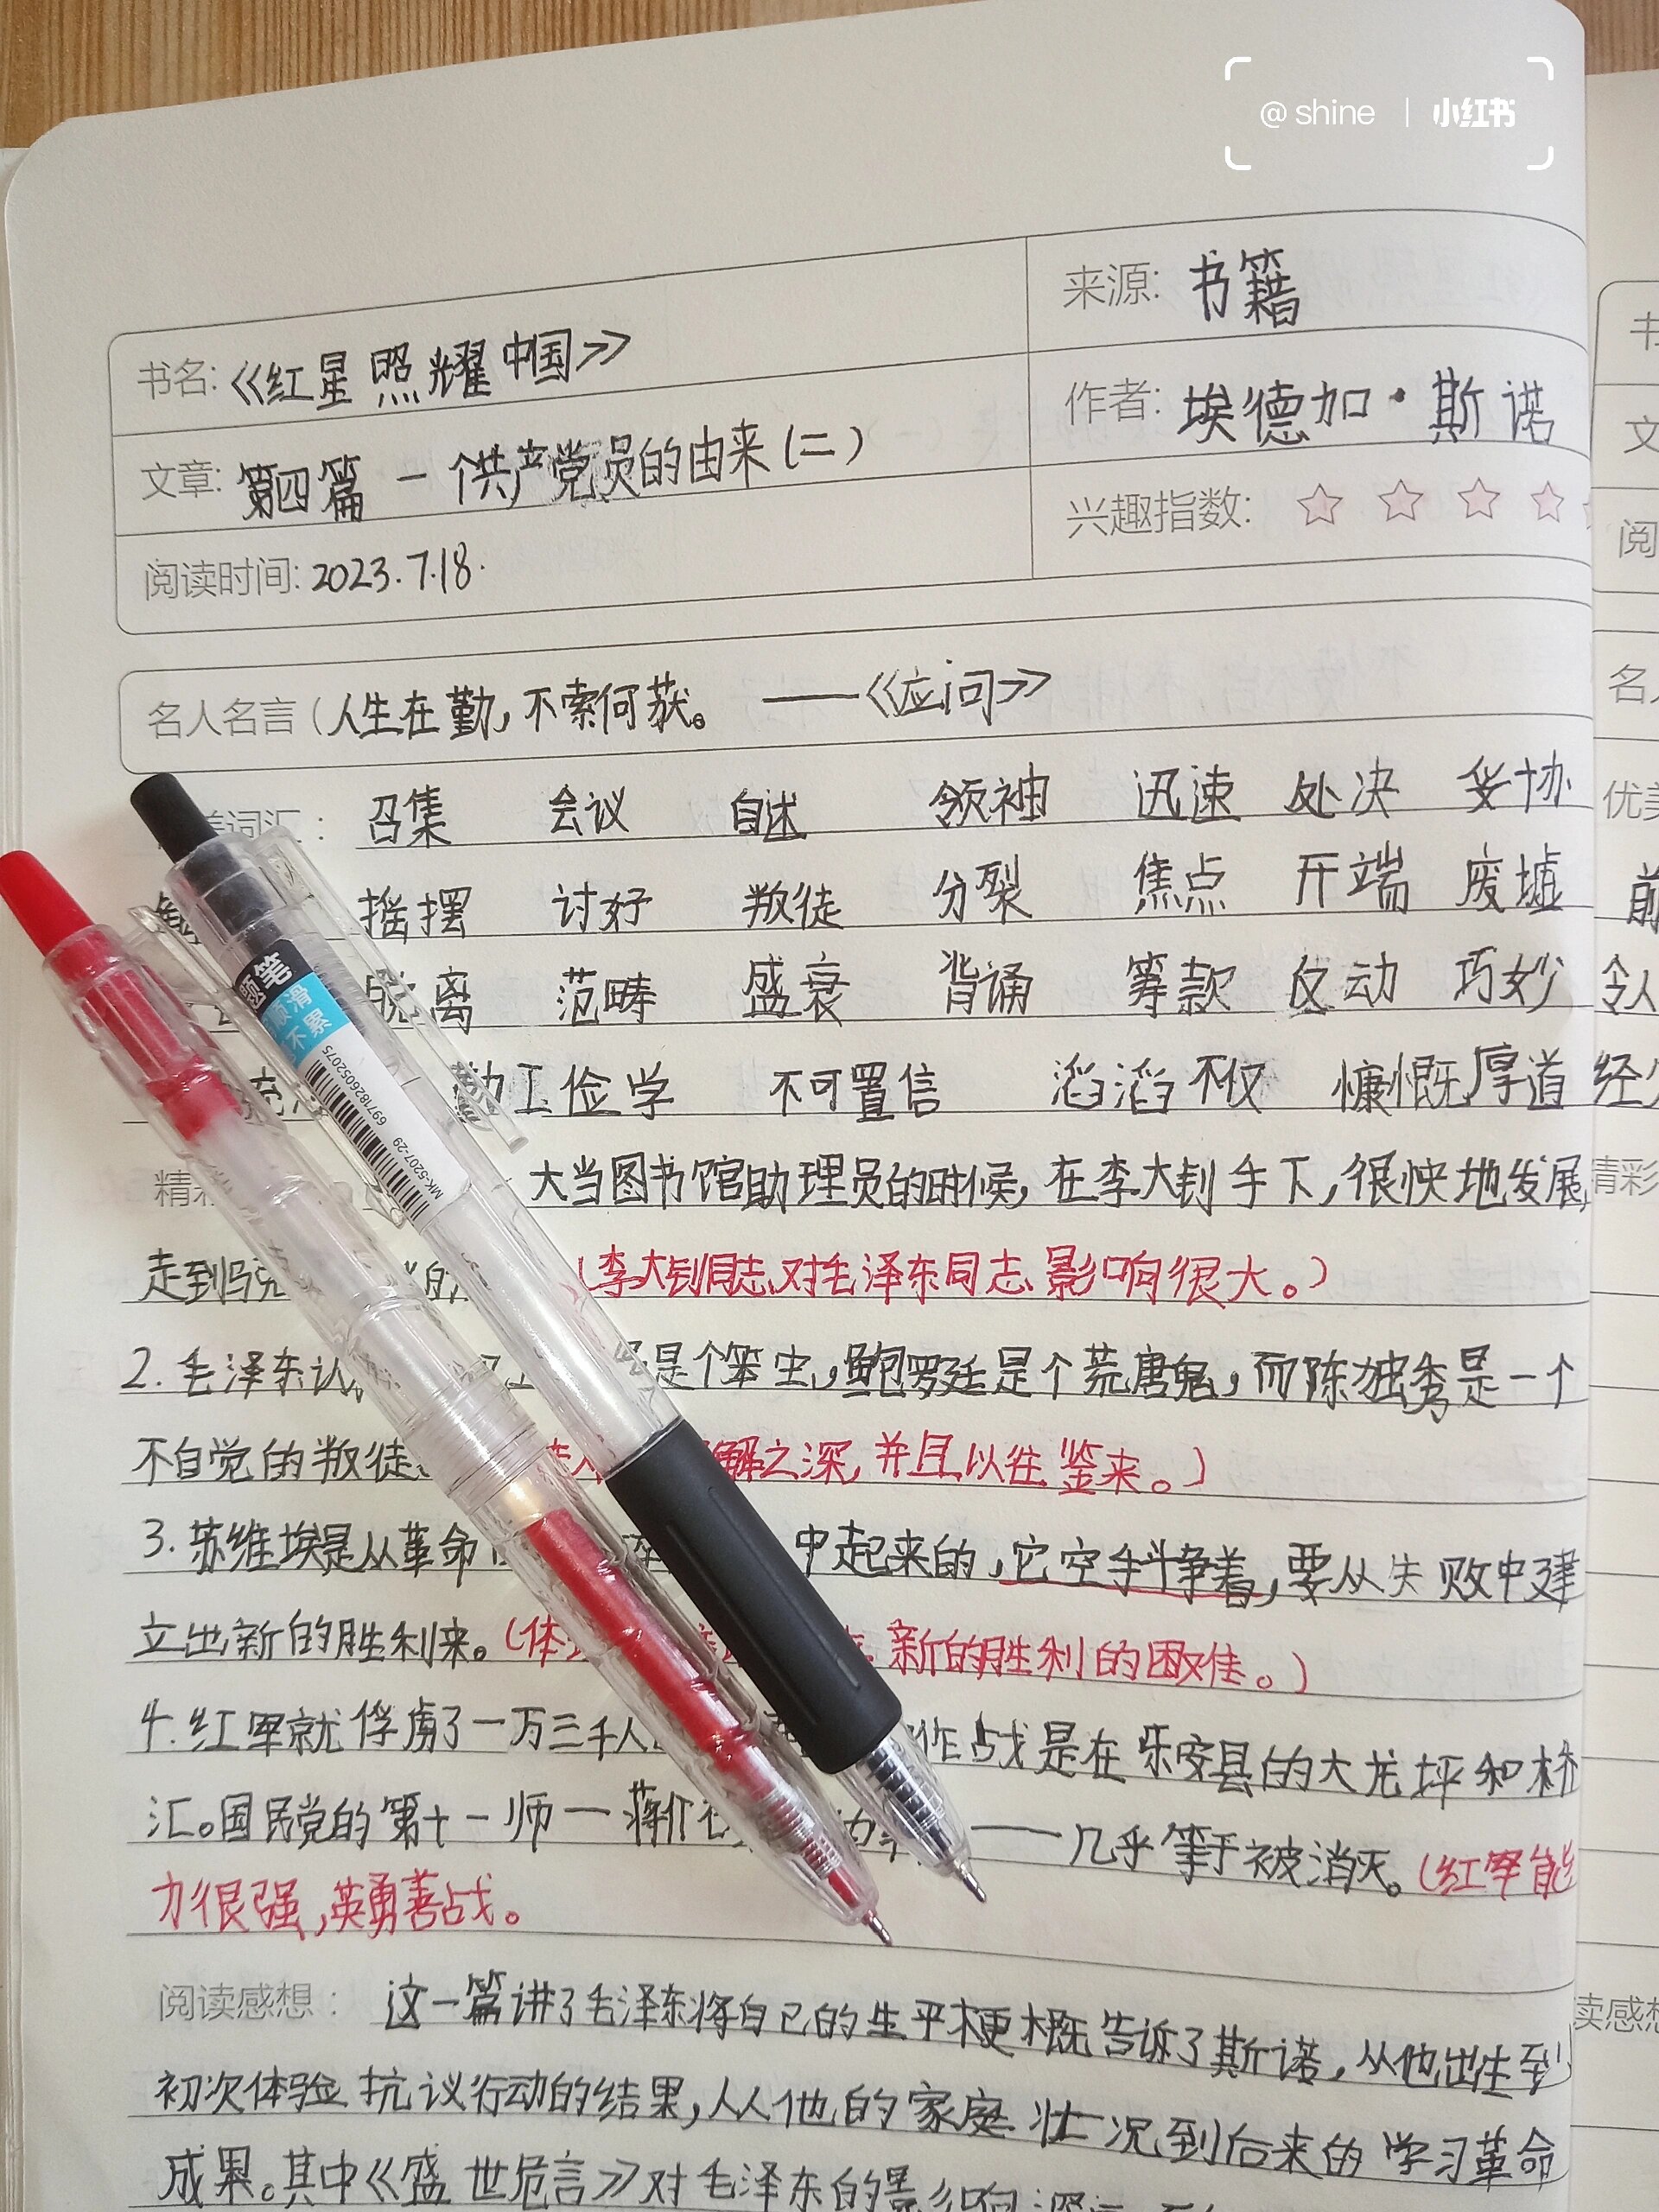 @shine | 小红书
来源: 书籍
书名: 《红星照耀中国》
作者: 埃德加·斯诺
文章: 第四篇 一个共产党员的由来(二)
兴趣指数: ☆ ☆ ☆ ☆
阅读时间: 2023.7.18.
名人名言(人生在勤,不索何获。 ——《应问》
词汇: 召集 会议 自述 领袖 迅速 处决 妥协
摇摆 讨好 叛徒 分裂 焦点 开端 废墟
脱离 范畴 盛衰 背诵 筹款 反动 巧妙
充 勤工俭学 不可置信 滔滔不仅 慷慨厚道
精彩 大当图书馆助理员的时候,在李大钊手下,很快地发展,
走到马克 (李大钊同志对毛泽东同志影响很大。)
2.毛泽东认 是个笨虫,鲍罗廷是个荒唐鬼,而陈独秀是一个
不自觉的叛徒 解之深,并且以往鉴来。)
3.苏维埃是从革命 中起来的,它空手斗争着,要从失败中建
立出新的胜利来。(体 新的胜利的困难。)
4.红军就俘虏了一万三千人 作战是在乐安县的大龙坪和桥
汇。国民党的第十一师—蒋介石 ——几乎等于被消灭。(红军能
力很强,英勇善战。
阅读感想: 这一篇讲了毛泽东将自己的生平梗概告诉了斯诺,从他出生到
初次体验抗议行动的结果,从他的家庭状况到后来的学习革命
成果。其中《盛世危言》对毛泽东的影响深
书
文
阅
名
优美
前
令人
经
精彩
读感想
题笔
顺滑
不累
6971826052075
MK-5207-29